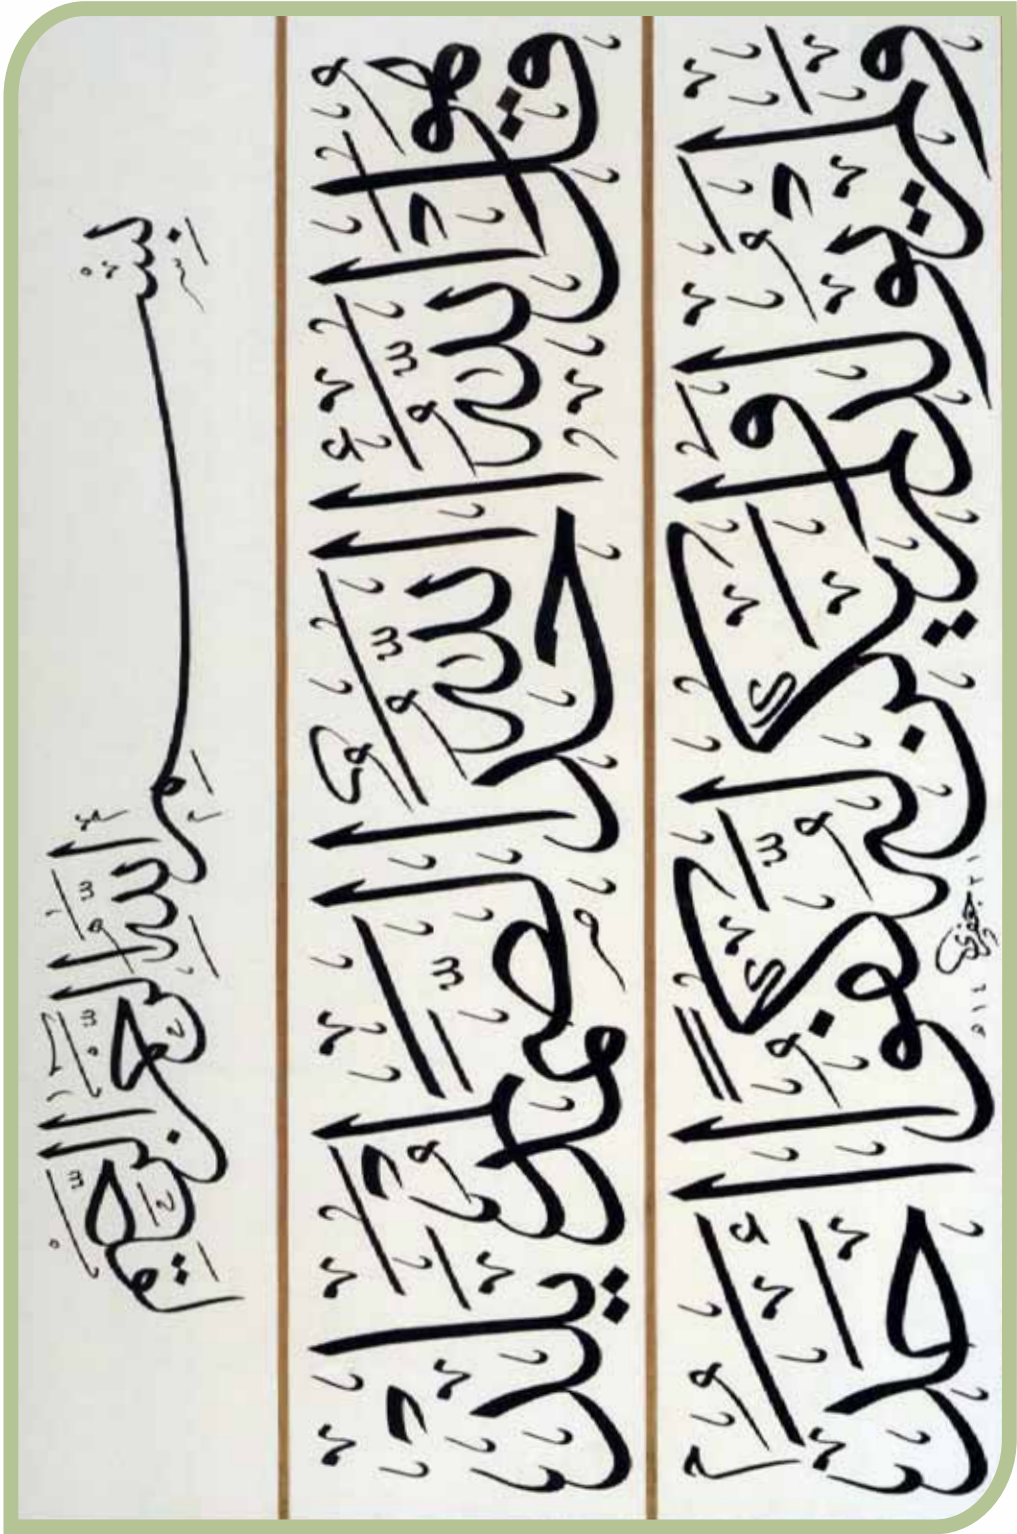 بسم الله الرحمن الرحيم
قل هو الله احد الله الصمد لم يلد
ولم يولد ولم يكن له كفوا احد